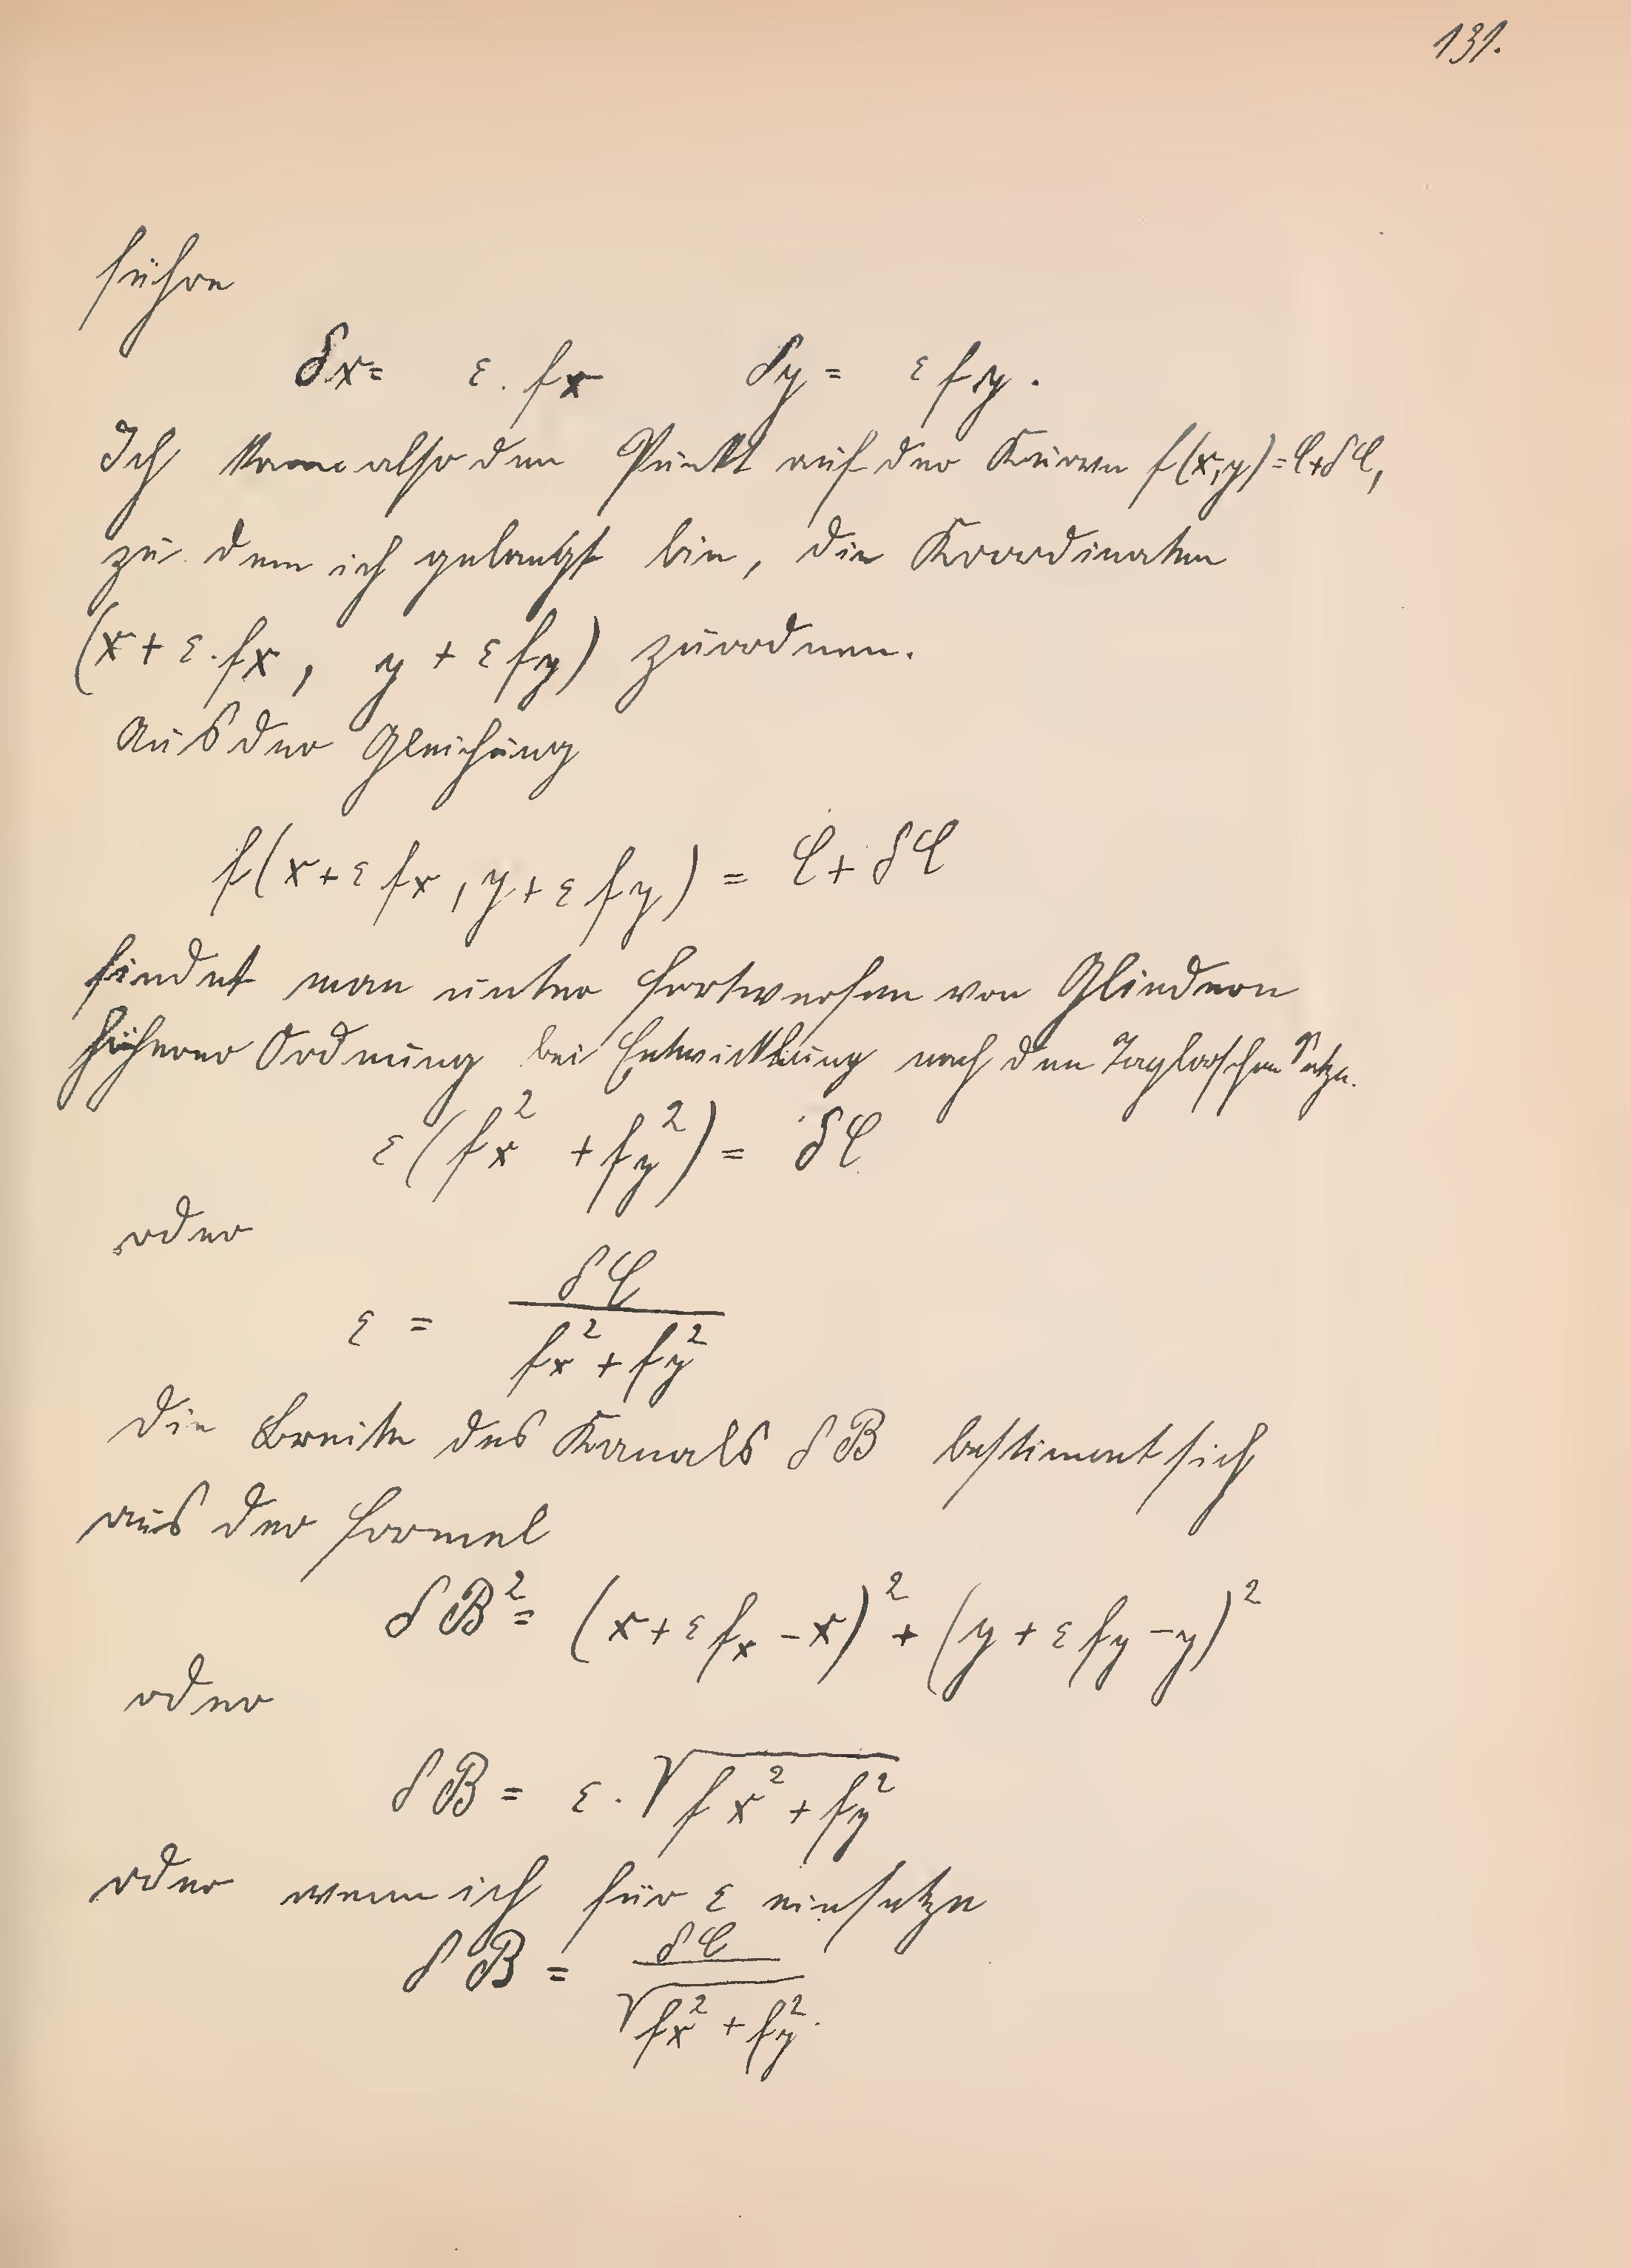 131.
führe
δx = ε. fx δy = ε fy.
Ich kann also dem Punkt auf der Kurve f(x,y) = C+δC,
zu dem ich gelangt bin, die Koordinaten
(x + ε. fx, y + ε fy) zuordnen.
Aus der Gleichung
f(x+ε fx, y+ε fy) = C + δC
findet man unter Fortwerfen von Gliedern
höherer Ordnung bei Entwicklung nach dem Taylorschen Satze.
ε(fx² + fy²) = δC
oder
ε = δC / (fx² + fy²)
Die Breite des Kanals δB bestimmt sich
aus der Formel
δB² = (x+ε fx − x)² + (y + ε fy − y)²
oder
δB = ε · √(fx² + fy²)
oder wenn ich für ε einsetze
δB = δC / √(fx² + fy²).